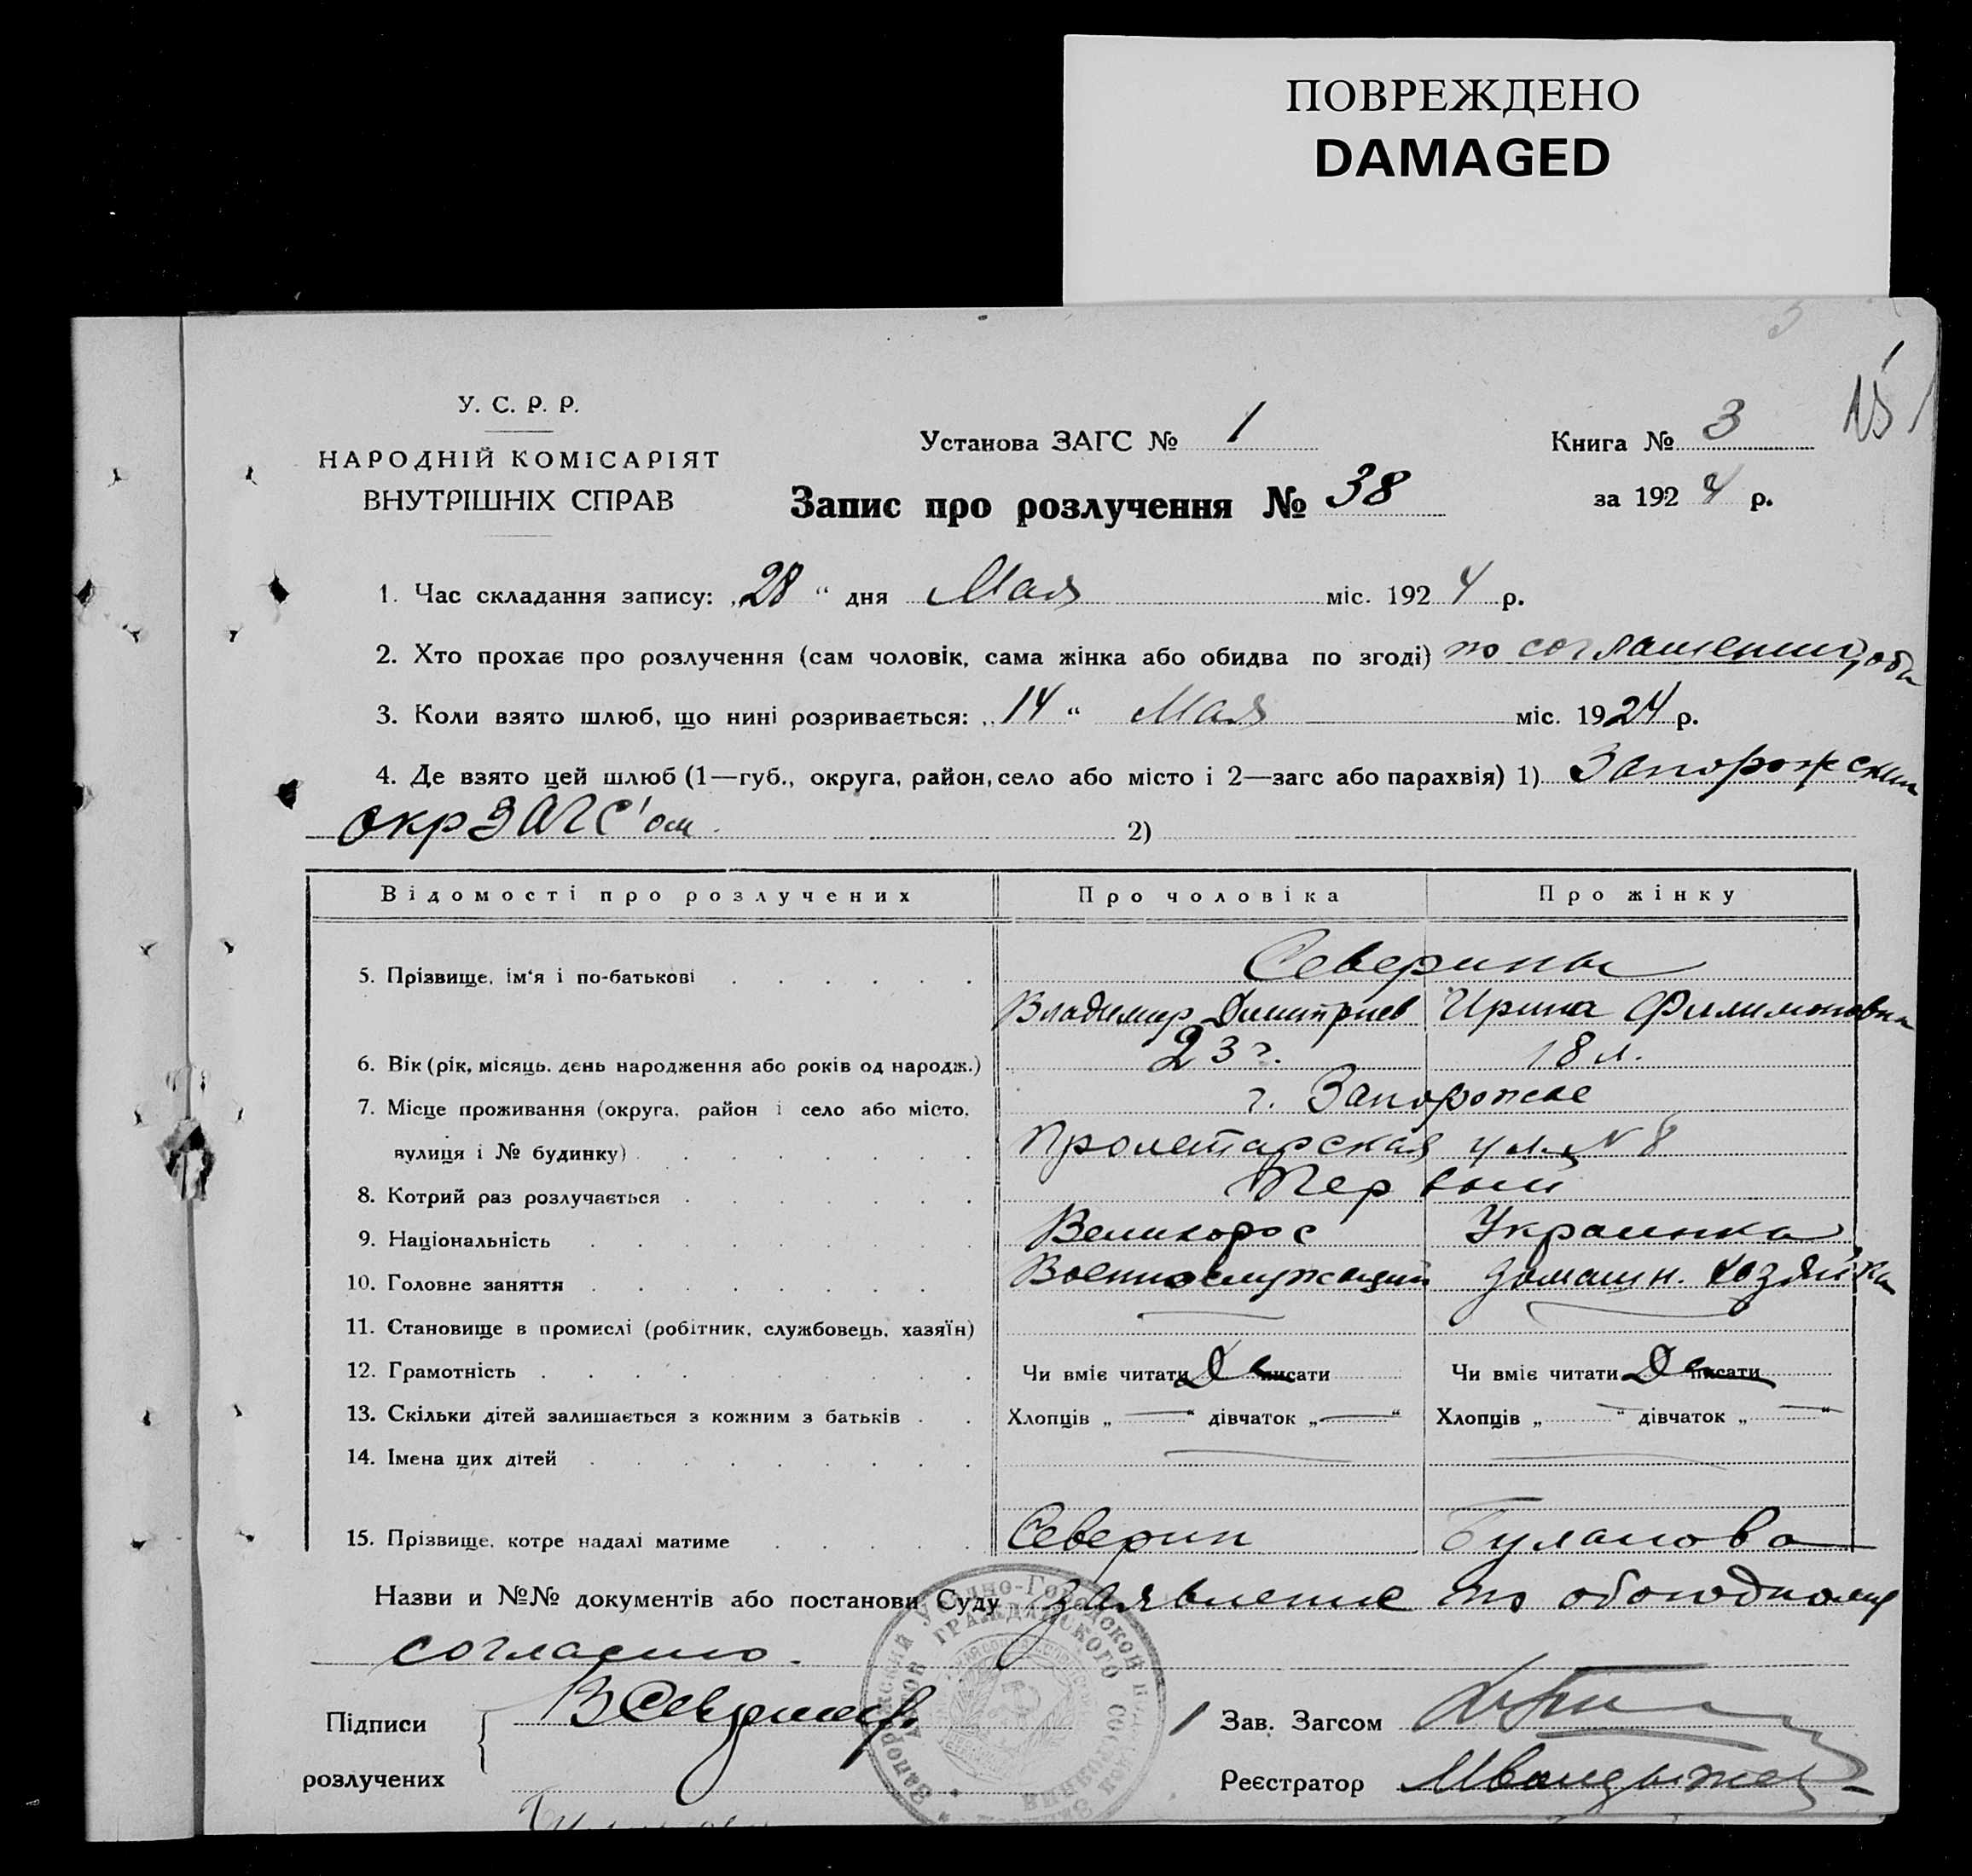 ПОВРЕЖДЕНО
DAMAGED
У. С. Р. Р.
НАРОДНІЙ КОМІСАРІЯТ
ВНУТРІШНІХ СПРАВ
Установа ЗАГС № 1
Книга № 3
15
Запис про розлучення № 38
за 1924 р.
1. Час складання запису: „28“ дня Мая міс. 1924 р.
2. Хто прохає про розлучення (сам чоловік, сама жінка або обидва по згоді) по соглашению, оба
3. Коли взято шлюб, що нині розривається: „14“ Мая міс. 1924 р.
4. Де взято цей шлюб (1—губ., округа, район, село або місто і 2—загс або парахвія) 1) Запорожским
окрЗАГС'ом. 2)
Відомості про розлучених Про чоловіка Про жінку
5. Прізвище, ім'я і по-батькові Северины
Владимир Димитриев Ирина Филимоновна
6. Вік (рік, місяць, день народження або років од народж.) 23 г. 18 л.
7. Місце проживання (округа, район і село або місто, г. Запорожье
вулиця і № будинку) Пролетарская ул. № 8
8. Котрий раз розлучається Первый
9. Національність Великорос Украинка
10. Головне заняття Военнослужащий домашн. хозяйка
11. Становище в промислі (робітник, службовець, хазяїн)
12. Грамотність Чи вміє читати Да писати Чи вміє читати Да писати
13. Скільки дітей залишається з кожним з батьків Хлопців „—“ дівчаток „—“ Хлопців „—“ дівчаток „—“
14. Імена цих дітей
15. Прізвище, котре надалі матиме Северин Буланова
Назви и №№ документів або постанови Суду Заявление по обоюдному
согласию.
Підписи
розлучених
В Северин
Зав. Загсом
Реєстратор
ГРАЖДАНСКОГО СОСТОЯНИЯ